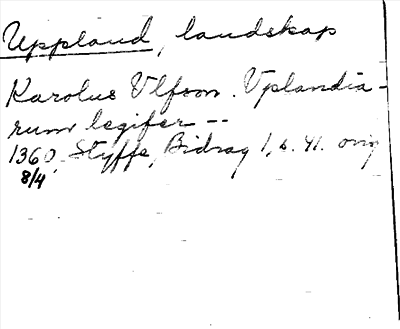 Uppland, landskap
Karolus Vlfson. Vplandia-
rum legifer --
1360 Styffe, Bidrag 1, s. 41. orig
8/4